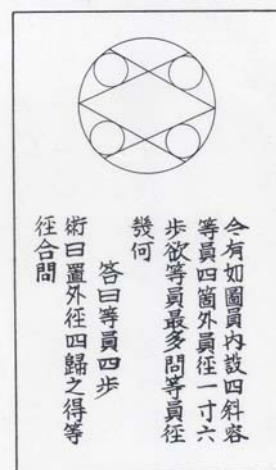 今有如圖員内設四斜容
等員四箇外員徑一寸六
歩欲等員最多問等員徑
幾何
答曰等員四歩
術曰置外徑四歸之得等
徑合問